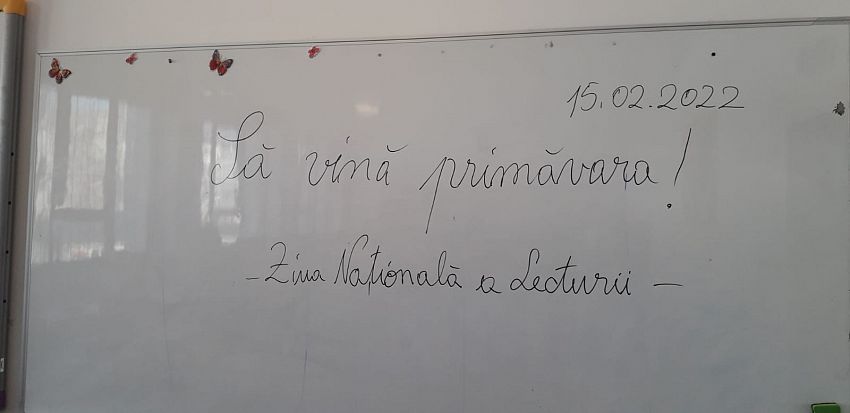 15.02.2022
Să vină primăvara!
- Ziua Națională a Lecturii -